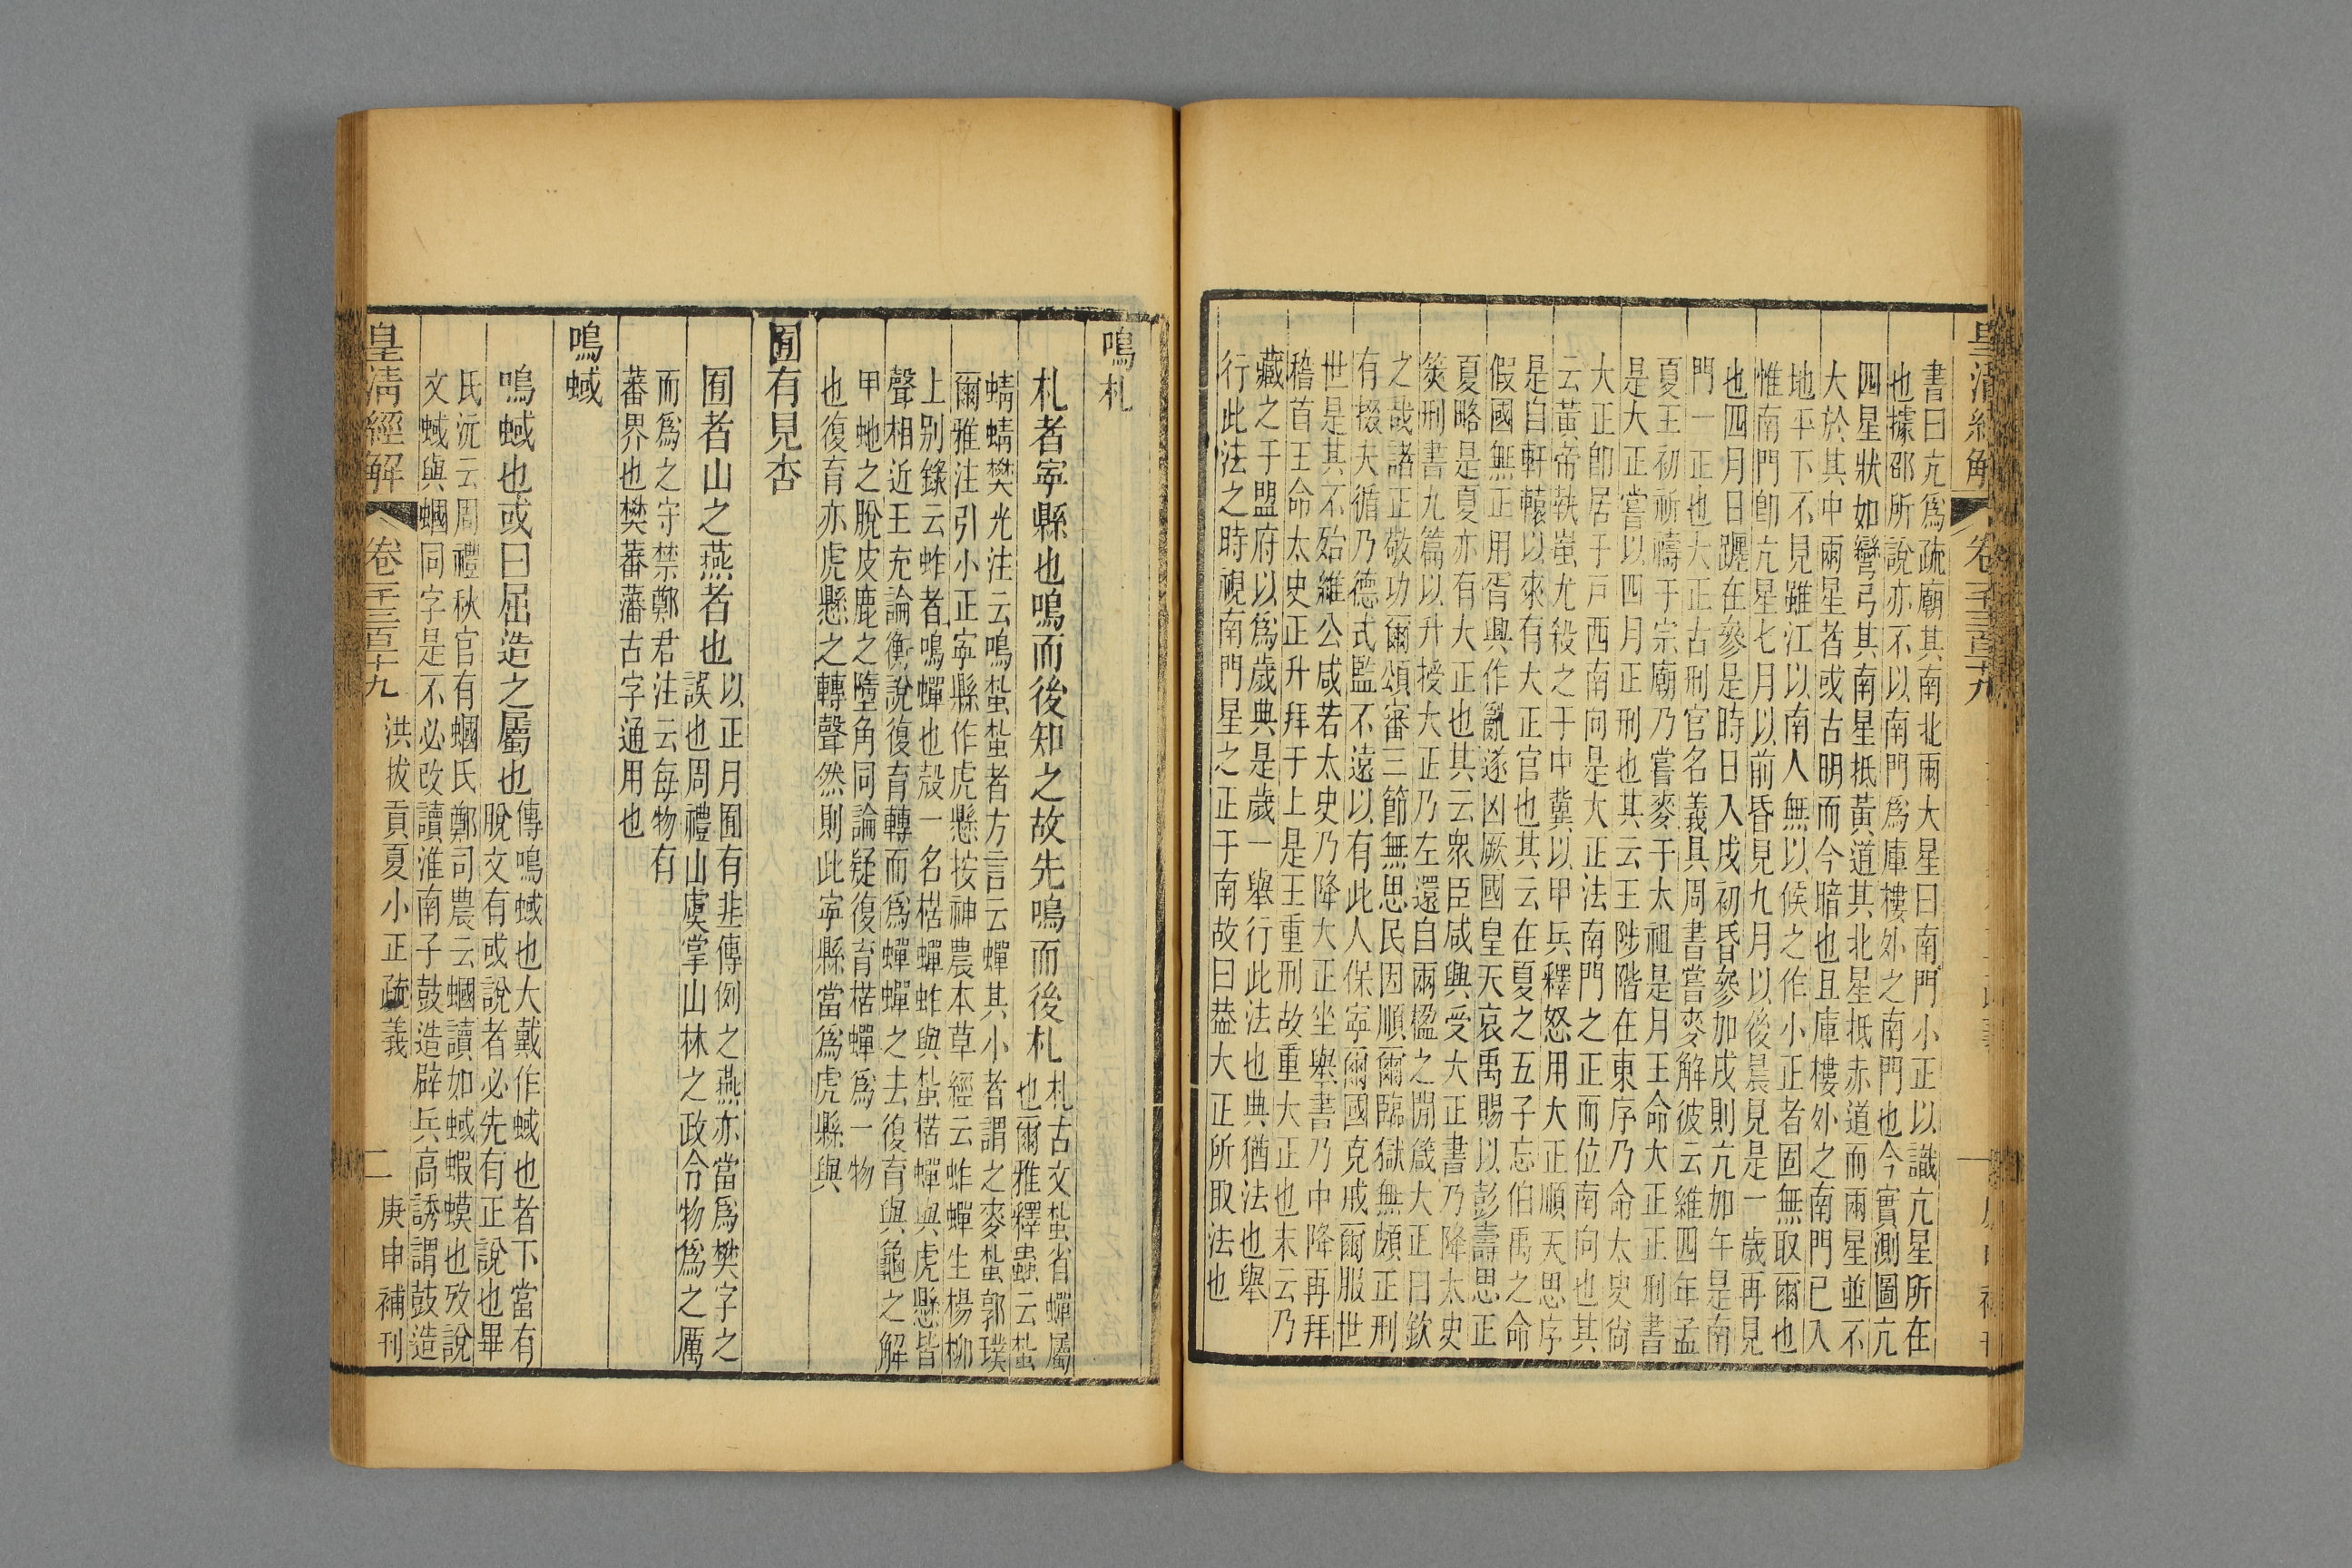 書曰亢爲疏廟其南北兩大星曰南門小正以識亢星所在
也據邵所說亦不以南門爲庫樓外之南門也今實測圖亢
四星狀如彎弓其南星抵黃道其北星抵赤道而兩星並不
大於其中兩星者或古明而今暗也且庫樓外之南門已入
地平下不見雖江以南人無以候之作小正者固無取爾也
惟南門卽亢星七月以前昏見九月以後晨見是一歲再見
也四月日躔在參是時日入戌初昏參加戌則亢加午是南
門一正也大正古刑官名義具周書嘗麥解彼云維四年孟
夏王初祈禱于宗廟乃嘗麥于太祖是月王命大正正刑書
是大正嘗以四月正刑也其云王陟階在東序乃命太史尙
大正卽居于戸西南向是大正法南門之正而位南向也其
云黃帝執蚩尤殺之于中冀以甲兵釋怒用大正順天思序
是自軒轅以來有大正官也其云在夏之五子忘伯禹之命
假國無正用胥興作亂遂凶厥國皇天哀禹賜以彭壽思正
夏略是夏亦有大正也其云衆臣咸興受大正書乃降太史
筴刑書九篇以升授大正乃左還自兩楹之閒箴大正曰欽
之哉諸正敬功爾頌審三節無思民因順爾臨獄無頗正刑
有掇夫循乃德式監不遠以有此人保寧爾國克戒爾服世
世是其不殆維公咸若太史乃降大正坐舉書乃中降再拜
稽首王命太史正升拜于上是王重刑故重大正也末云乃
藏之于盟府以爲歲典是歲一舉行此法也典猶法也舉
行此法之時視南門星之正于南故曰葢大正所取法也
鳴札
札者寧縣也鳴而後知之故先鳴而後札
札古文蚻省蟬屬
也爾雅釋蟲云蚻
蜻蜻樊光注云鳴蚻蚻者方言云蟬其小者謂之麥蚻郭璞
爾雅注引小正寧縣作虎懸按神農本草經云蚱蟬生楊柳
上别錄云蚱者鳴蟬也殻一名楛蟬蚱與蚻楛蟬與虎懸皆
聲相近王充論衡說復育轉而爲蟬蟬之去復育與龜之解
甲虵之脫皮鹿之墮角同論疑復育楛蟬爲一物
也復育亦虎懸之轉聲然則此寧縣當爲虎縣與
囿有見杏
囿者山之燕者也
以正月囿有韭傳例之燕亦當爲樊字之
誤也周禮山虞掌山林之政令物爲之厲
而爲之守禁鄭君注云每物有
蕃界也樊蕃藩古字通用也
鳴蜮
鳴蜮也或曰屈造之屬也
傳鳴蜮也大戴作蜮也者下當有
脫文有或說者必先有正說也畢
氏沅云周禮秋官有蟈氏鄭司農云蟈讀如蜮蝦蟆也攷說
文蜮與蟈同字是不必改讀淮南子鼓造辟兵高誘謂鼓造
皇淸經解
卷一千三百十九
洪拔貢夏小正疏義
二
庚申補刊